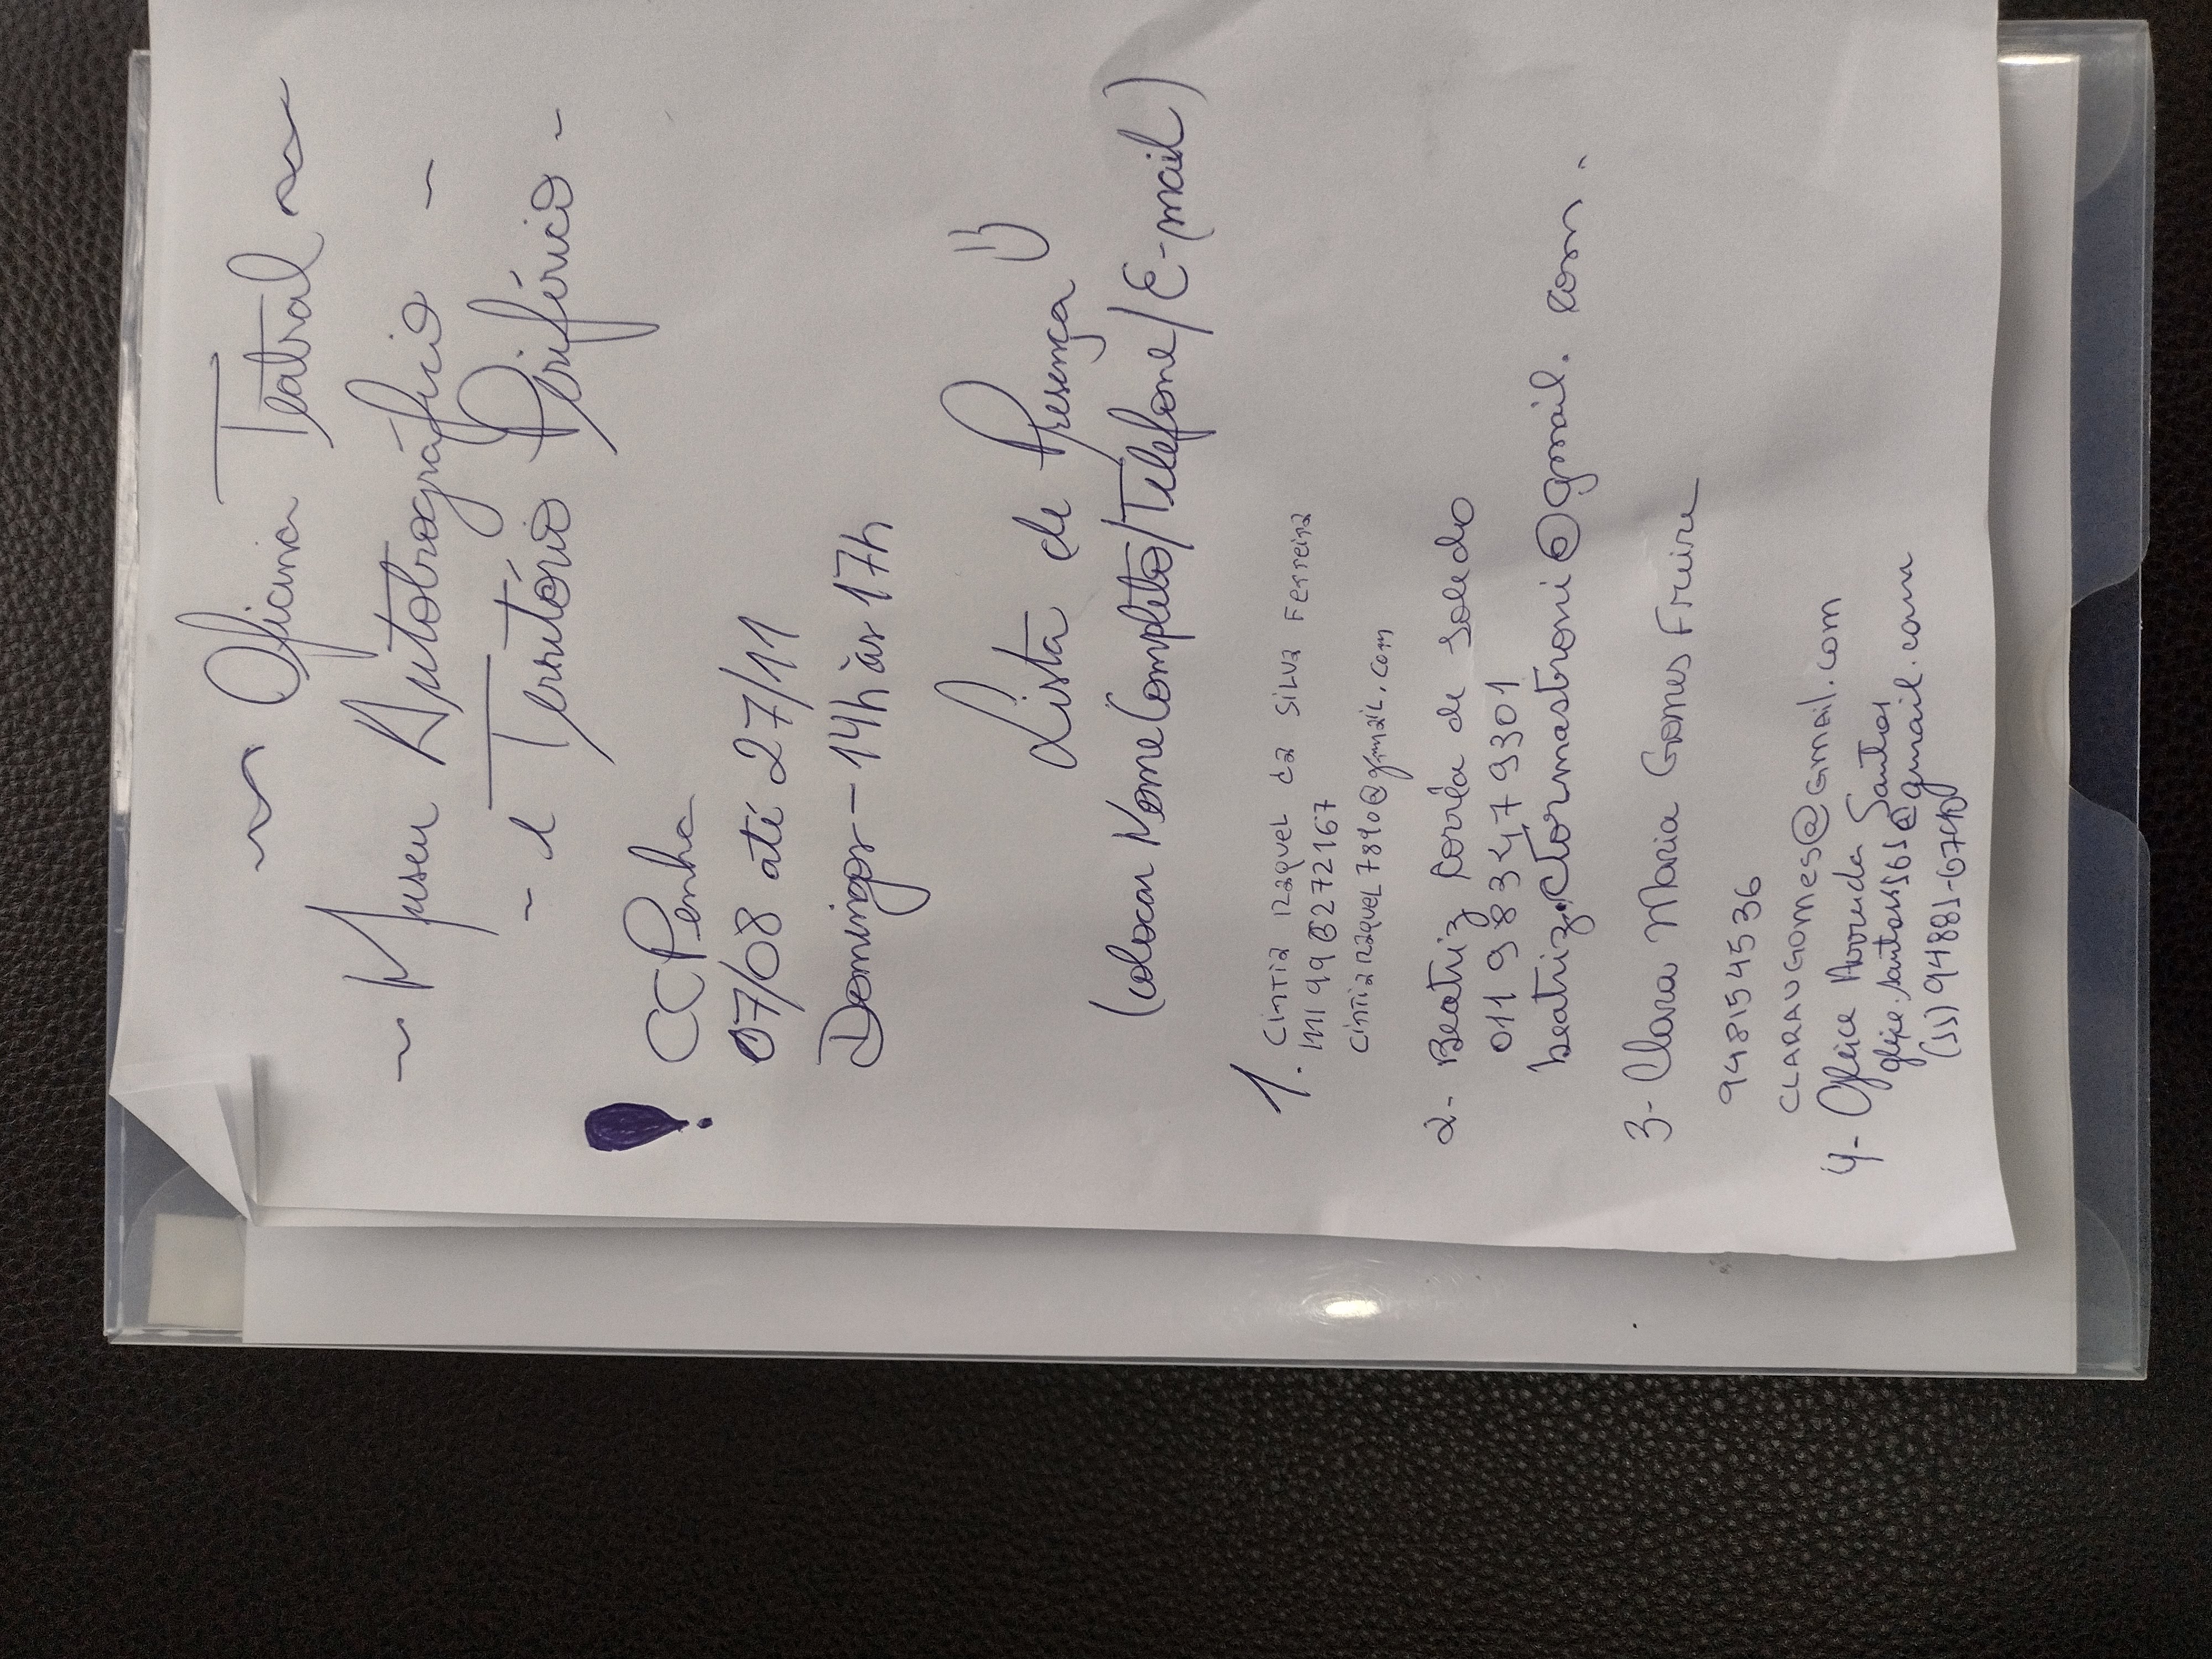 ~ Oficina Teatral ~
~ Museu Autobiográfico ~
~ e Território Periférico ~
! CCPenha
07/08 até 27/11
Domingos - 14h às 17h
Lista de Presença
(colocar Nome Completo/Telefone/E-mail)
1. Cintia Raquel da Silva Ferreira
(11) 996272167
cintiaraquel7890@gmail.com
2- Beatriz Corrêa de Toledo
011 983479301
beatriz.ctormastroni@gmail.com.
3- Clara Maria Gomes Freire
948154536
CLARAVGOMES@GMAIL.COM
4- Gleice Arruda Santos
(11) 94881-6740